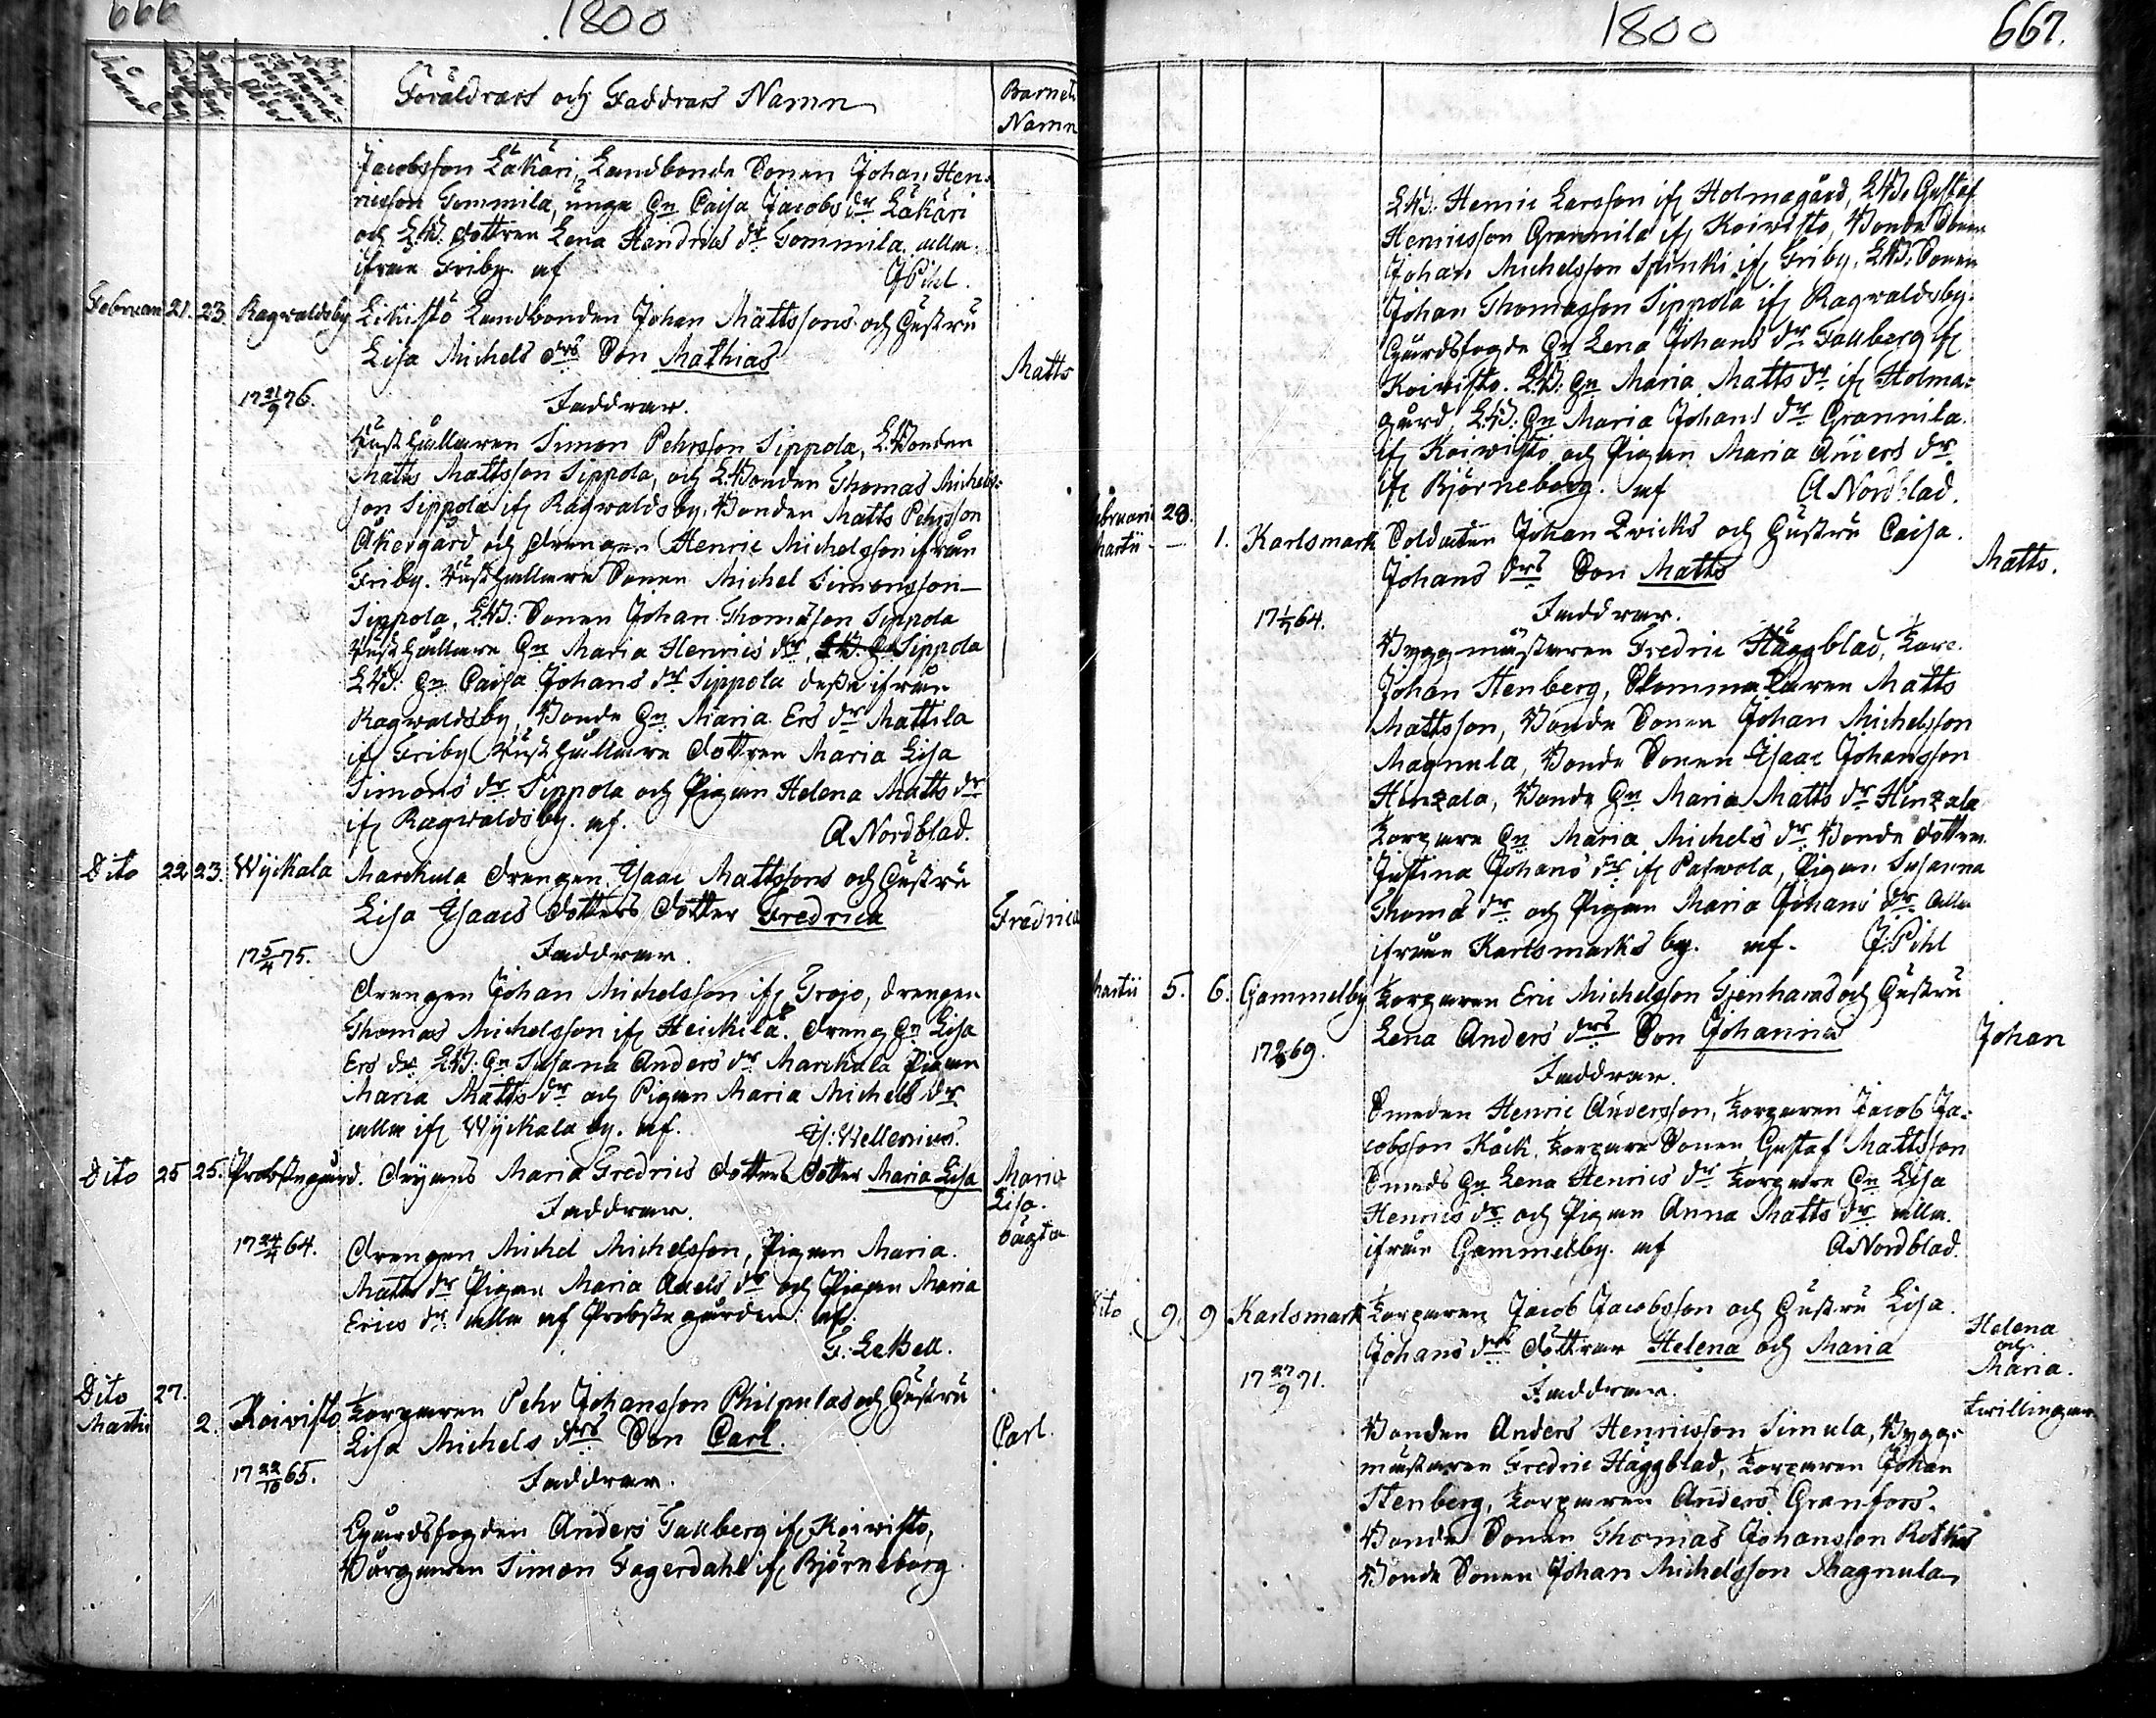 666
1800
Föräldrars och Faddrars Namn
Barnets
Namn
Jacobsson Läkäri, Landbonde Sonen Johan Hen-
ricsson Tommila, unga hu Caisa Jacobs dr Läkäri
och L.B. dottren Lena Hendrics dr Tommila, alla
ifrån Friby. af JPihl.
Februarii 21. 23. Ragvaldsby Eikistö Landbonden Johan Mattssons och hustru
Lisa Michels drs Son Mathias
Matts
17 21/9 76. Faddrar.
Rusthållaren Simon Pehrsson Sippola, L.Bonden
Matts Mattsson Sippola, och L.Bonden Thomas Michels-
son Sippola if Ragwaldsby, Bonden Matts Pehrsson
Åkergård och drengen Henric Michelsson ifrån
Friby. Rusthållare Sonen Michel Simonsson
Sippola, L.B: Sonen Johan Thomasson Sippola
Rusthållare hu Maria Henrics dr Sippola
L.B: hu Caisa Johans dr Sippola dessa ifrån
Ragwaldsby, Bonde hu Maria Ers dr Mattila
if Friby Rusthållare dottren Maria Lisa
Simons dr Sippola och Pigan Helena Matts dr
if Ragwaldsby. af. A Nordblad.
Dito 22 23. Wyckala Marckula drengen Ysaac Mattssons och hustru
Lisa Ysaacs dotters dotter Fredrica
Fredrica
17 5/4 75. Faddrar.
drengen Johan Michelsson if Trojo, drengen
Thomas Michelsson if Heickilä. dreng hu Lisa
Ers dr L.B: hu Susana Anders dr Marckula Pigan
Maria Matts dr och Pigan Maria Michels dr
alla if Wyckala by. af. Y: Wellenius.
Dito 25 25. Probstegård. Maria Fredrics dotters dotter Maria Lisa
Maria
Lisa.
oägta
Faddrar.
17 24/4 64. drengen Michel Michelsson, Pigan Maria
Matts dr Pigan Maria Axels dr och Pigan Maria
Erics dr alla af Probstegården. af.
G: LeBell.
Dito 27.
Martii 2. Koivisto Torparen Pehr Johansson Philpulas och hustru
Lisa Michels drs Son Carl.
Carl.
17 22/10 65. Faddrar.
Gårdsfogden Anders Tallberg if Koivisto,
Borgaren Simon Fagerdahl if Björneborg
1800
667.
L.B: Henric Larsson if Holmagård, L.B: Gustaf
Henricsson Grannila if Koivisto, Bonde Sonen
Johan Michelsson Spinki if Friby, L.B: Sonen
Johan Thomasson Sippola if Ragvaldsby.
Gårdsfogde hu Lena Johans dr Tallberg if
Koivisto. L.B: hu Maria Matts dr if Holma-
gård, L.B: hu Maria Johans dr Grannila
if Koivisto och Pigan Maria Anders dr
if Björneborg. af A Nordblad.
Februarii 28.
Martii — 1. Karlsmark Soldaten Johan Qvicks och hustru Caisa
Johans drs Son Matts
Matts.
17 64. Faddrar.
Byggmästaren Fredric Häggblad, Torp.
Johan Stenberg, Stommakaren Matts
Mattsson, Bonde Sonen Johan Michelsson
Magnula, Bonde Sonen Ysaac Johansson
Hinzala, Bonde hu Maria Matts dr Hinzala
Torpare hu Maria Michels dr Bonde dottren
Justina Johans dr if Paswola, Pigan Susanna
Thoma dr och Pigan Maria Johans dr alla
ifrån Karlsmarks by. af. J:Pihl
Martii 5. 6. Gammelby Torparen Eric Michelsson och hustru
Lena Anders drs Son Johannes
Johan
17 69. Faddrar.
Smeden Henric Andersson, Torparen Jacob Ja-
cobsson Käck, Torpare Sonen Gustaf Mattsson
Smeds hu Lena Henrics dr Torpare hu Lisa
Henrics dr och Pigan Anna Matts dr alla
ifrån Gammelby. af A Nordblad.
Dito 9. 9 Karlsmark Torparen Jacob Jacobsson och hustru Lisa
Johans drs döttrar Helena och Maria
Helena
och
Maria.
Twillingar
17 27/9 71. Faddrar.
Bonden Anders Henricsson Simula, Bygg-
mästaren Fredric Häggblad, Torparen Johan
Stenberg, Torparen Anders Granfors.
Bonde Sonen Thomas Johansson
Bonde Sonen Johan Michelsson Magnula